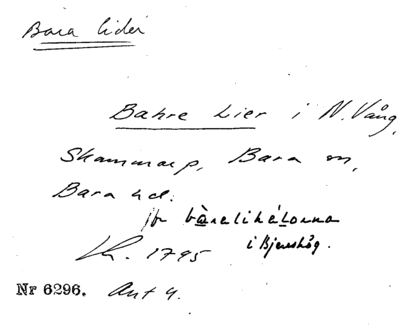 Bara lider
Bahre Lier i N. Vång,
Skammarp, Bara sn,
Bara hd.
jfr bàralihéʟorna
i Bjershög.
Lh. 1795
Nr 6296. Akt 4.